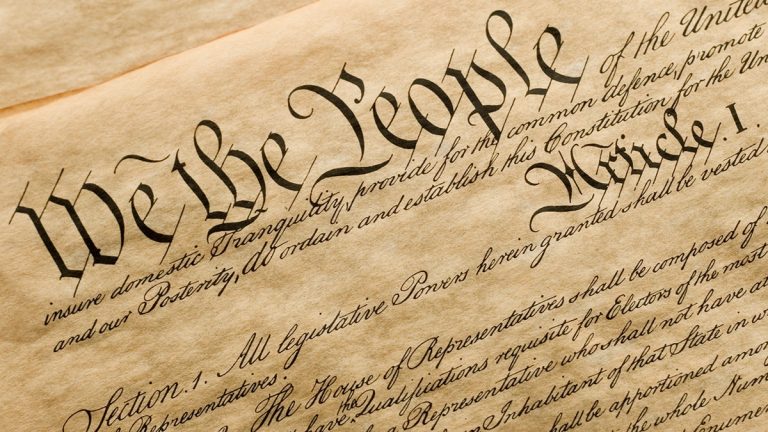 We the People of the United
insure domestic Tranquility, provide for the common defence, promote
and our Posterity, do ordain and establish this Constitution for the Un
Article. I.
Section. 1. All legislative Powers herein granted shall be vested
Representatives.
The House of Representatives shall be composed of
have the Qualifications requisite for Electors of the most
a Representative who shall not have at
an Inhabitant of that State in w
shall be apportioned amon
the whole Num
Enumer